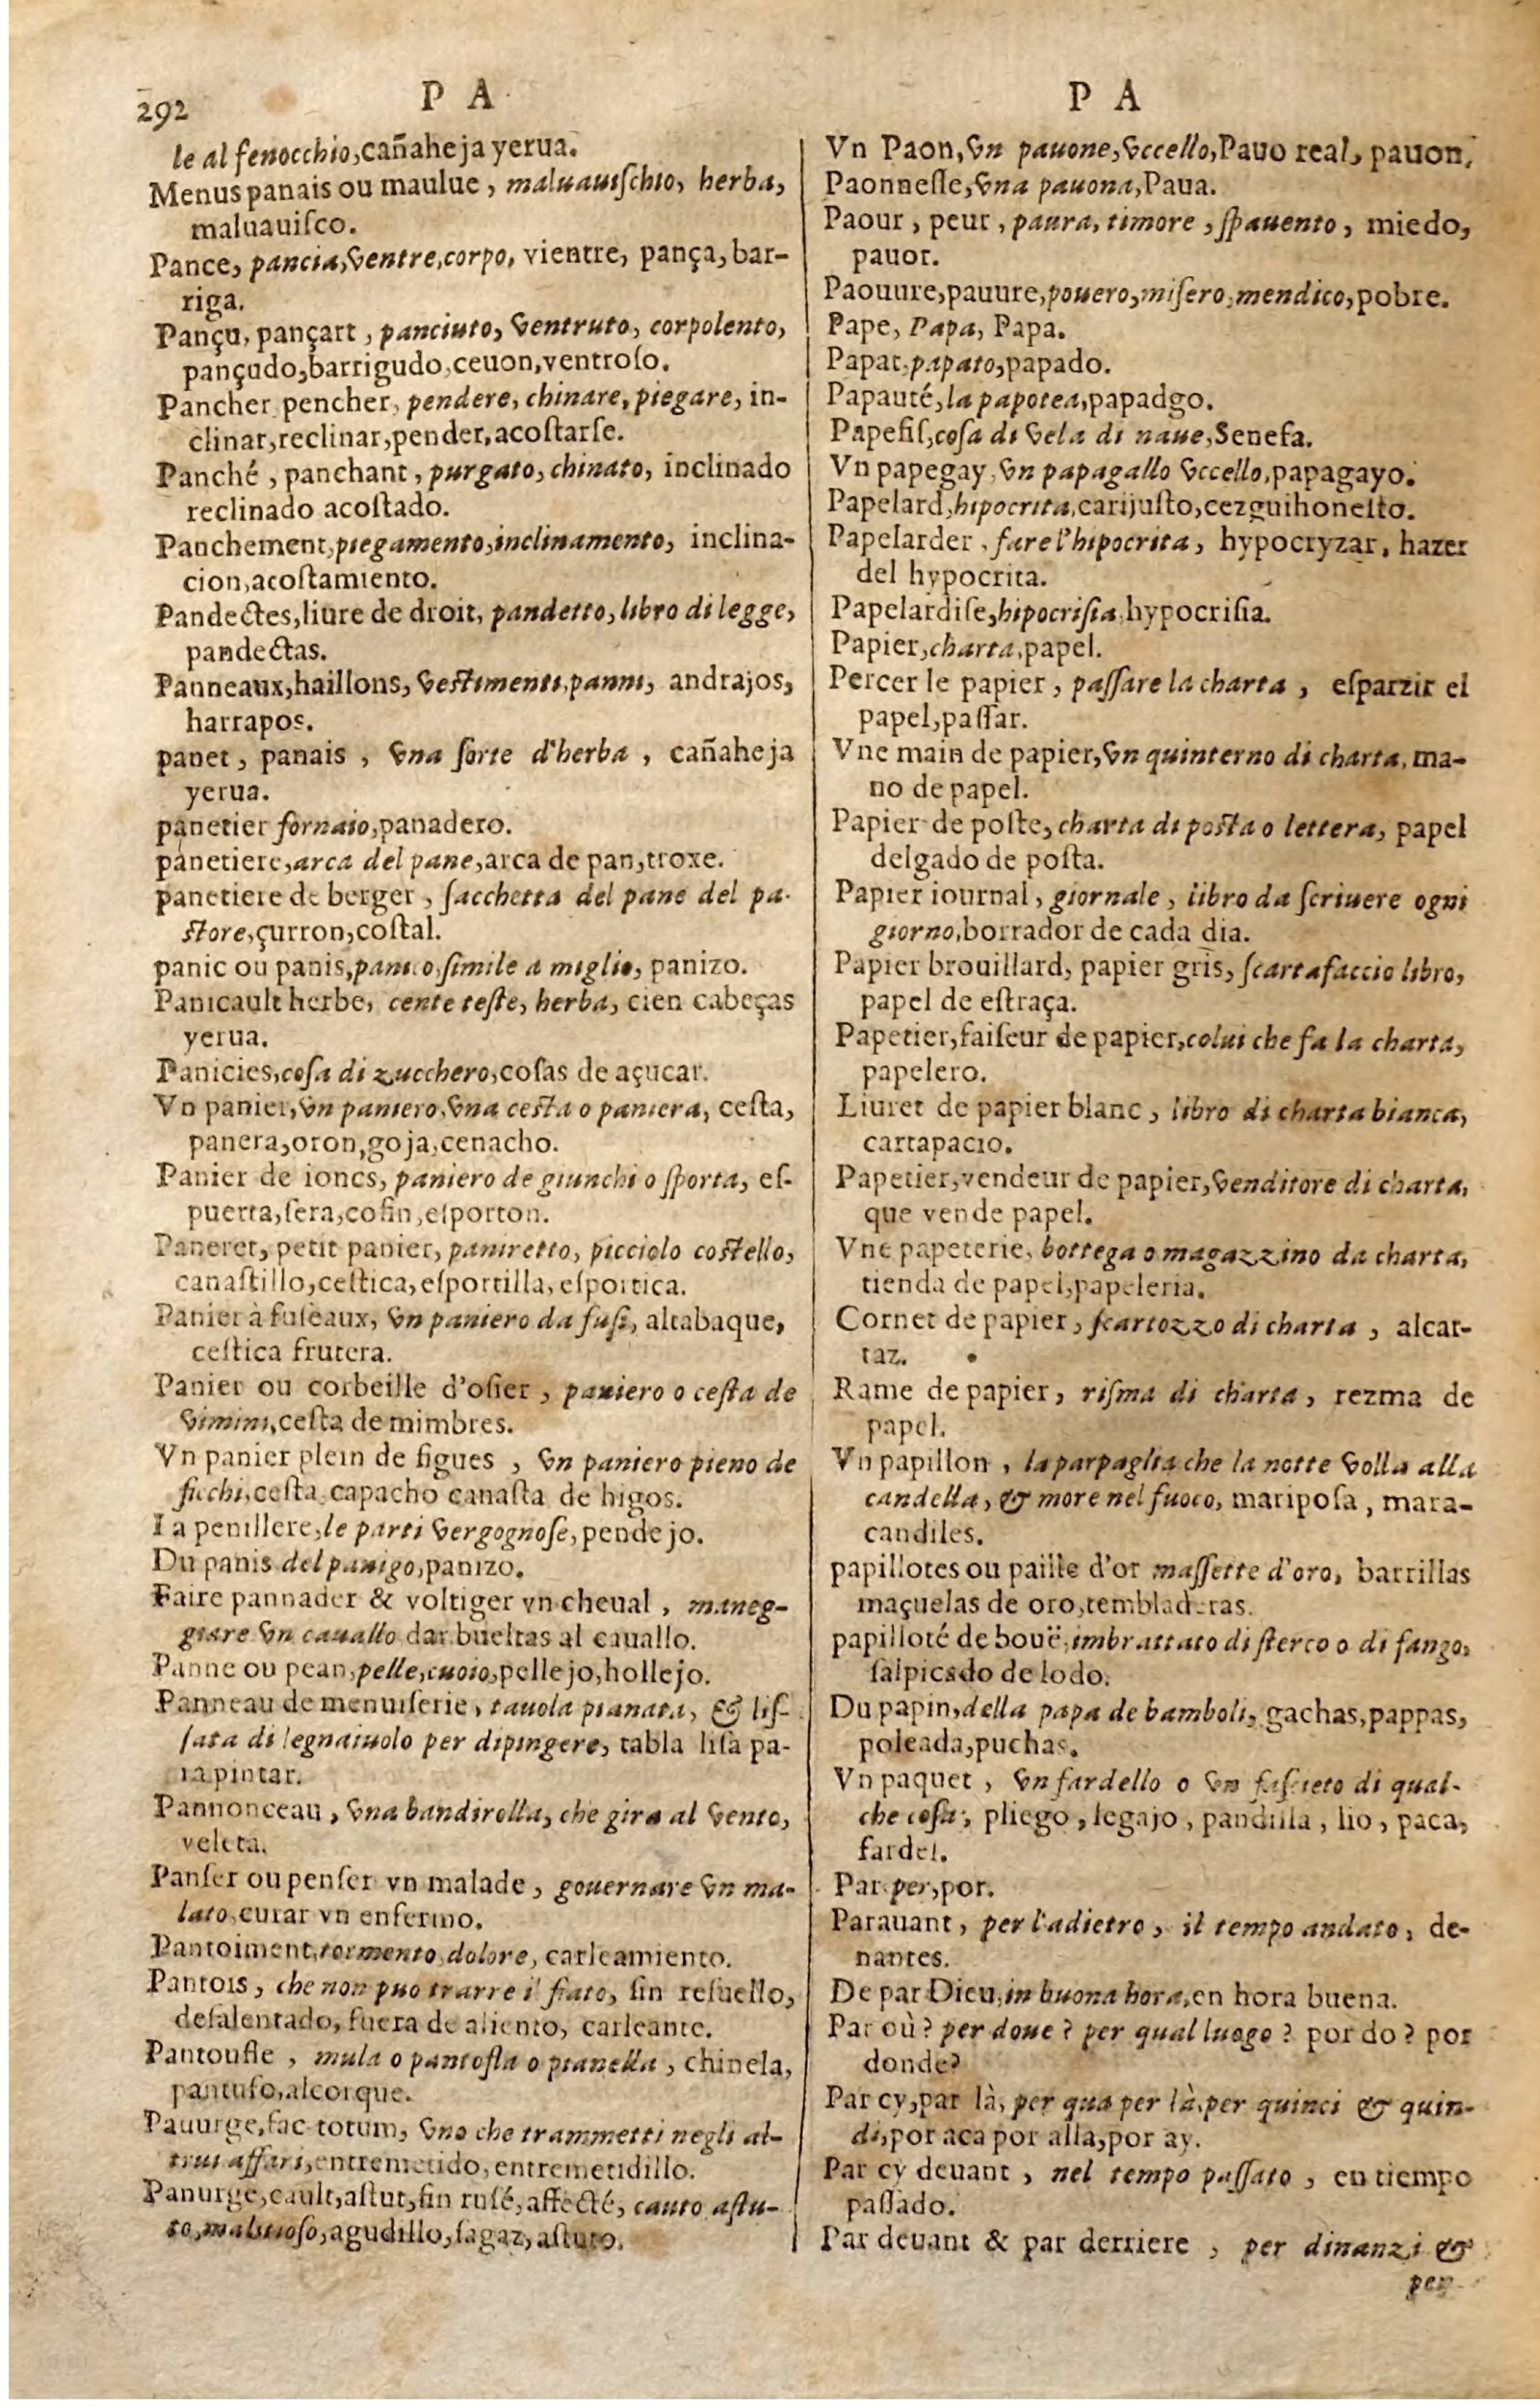 292
P A
P A
le al fenocchio,cañaheja yerua.
Menus panais ou maulue, maluauiſchio, herba,
maluauiſco.
Pance, pancia, ventre, corpo, vientre, pança, bar-
riga.
Pançu, pançart, panciuto, ventruto, corpolento,
pançudo,barrigudo,ceuon,ventroſo.
Pancher pencher, pendere, chinare, piegare, in-
clinar,reclinar,pender,acoſtarſe.
Panché, panchant, purgato, chinato, inclinado
reclinado acoſtado.
Panchement,piegamento,inclinamento, inclina-
cion,acoſtamiento.
Pandectes,liure de droit, pandetto, libro di legge,
pandectas.
Panneaux,haillons, veſtimenti,panni, andrajos,
harrapos.
panet, panais, vna ſorte d'herba, cañaheja
yerua.
panetier fornaio,panadero.
panetiere,arca del pane,arca de pan,troxe.
panetiere de berger, ſacchetta del pane del pa-
ſtore,çurron,coſtal.
panic ou panis,panico,ſimile a miglio, panizo.
Panicault herbe, cente teſte, herba, cien cabeças
yerua.
Panicies,coſa di zucchero,coſas de açucar.
Vn panier,vn paniero,vna ceſta o paniera, ceſta,
panera,oron,goja,cenacho.
Panier de ioncs, paniero de giunchi o ſporta, eſ-
puerta,ſera,cofin,eſporton.
Paneret, petit panier, paniretto, picciolo coſtello,
canaſtillo,ceſtica,eſportilla,eſportica.
Panier à fuſeaux, vn paniero da fuſi, altabaque,
ceſtica frutera.
Panier ou corbeille d'oſier, paniero o ceſta de
vimini,ceſta de mimbres.
Vn panier plein de figues, vn paniero pieno de
fichi,ceſta,capacho canaſta de higos.
La penillere,le parti vergognoſe,pendejo.
Du panis del panigo,panizo.
Faire pannader & voltiger vn cheual, maneg-
giare vn cauallo dar bueltas al cauallo.
Panne ou pean,pelle,cuoio,pellejo,hollejo.
Panneau de menuiſerie, tauola pianata, & liſ-
ſata di legnaiuolo per dipingere, tabla liſa pa-
ra pintar.
Pannonceau, vna bandirolla, che gira al vento,
veleta.
Panſer ou penſer vn malade, gouernare vn ma-
lato,curar vn enfermo.
Pantoiment,tormento,dolore, carleamiento.
Pantois, che non puo trarre il fiato, ſin reſuello,
deſalentado, fuera de aliento, carleante.
Pantoufle, mula o pantofla o pianella, chinela,
pantufo,alcorque.
Pauurge,fac totum, vno che trammetti negli al-
trui affari,entremetido,entremetidillo.
Panurge,cault,aſtut,fin ruſé,affecté, cauto aſtu-
to,malitioſo,agudillo,ſagaz,aſtuto.
Vn Paon,vn pauone,vccello,Pauo real, pauon.
Paonneſſe,vna pauona,Paua.
Paour, peur, paura, timore, ſpauento, miedo,
pauor.
Paouure,pauure,pouero,miſero,mendico,pobre.
Pape, Papa, Papa.
Papat,papato,papado.
Papauté,la papotea,papadgo.
Papefis,coſa di vela di naue,Senefa.
Vn papegay,vn papagallo vccello,papagayo.
Papelard,hipocrita,carijuſto,cezguihoneſto.
Papelarder, fare l'hipocrita, hypocryzar, hazer
del hypocrita.
Papelardiſe,hipocriſia,hypocriſia.
Papier,charta,papel.
Percer le papier, paſſare la charta, eſparzir el
papel,paſſar.
Vne main de papier,vn quinterno di charta, ma-
no de papel.
Papier de poſte, charta di poſta o lettera, papel
delgado de poſta.
Papier iournal, giornale, libro da ſcriuere ogni
giorno,borrador de cada dia.
Papier brouillard, papier gris, ſcartafaccio libro,
papel de eſtraça.
Papetier,faiſeur de papier,colui che fa la charta,
papelero.
Liuret de papier blanc, libro di charta bianca,
cartapacio.
Papetier,vendeur de papier,venditore di charta,
que vende papel.
Vne papeterie, bottega o magazzino da charta,
tienda de papel,papeleria.
Cornet de papier, ſcartozzo di charta, alcar-
taz.
Rame de papier, riſma di charta, rezma de
papel.
Vn papillon, la parpaglia che la notte volla alla
candella, & more nel fuoco, mariposa, mara-
candiles.
papillotes ou paille d'or maſſette d'oro, barrillas
maçuelas de oro,tembladeras.
papilloté de bouë,imbrattato di ſterco o di fango,
ſalpicado de lodo.
Du papin,della papa de bamboli, gachas,pappas,
poleada,puchas.
Vn paquet, vn fardello o vn faſcieto di qual-
che coſa, pliego, legajo, pandilla, lio, paca,
fardel.
Par per,por.
Parauant, per l'adietro, il tempo andato, de-
nantes.
De par Dieu,in buona hora,en hora buena.
Par où? per doue? per qual luogo? por do? por
donde?
Par cy,par là, per qua per là,per quinci & quin-
di,por aca por alla,por ay.
Par cy deuant, nel tempo paſſato, en tiempo
paſſado.
Par deuant & par derriere, per dinanzi &
per